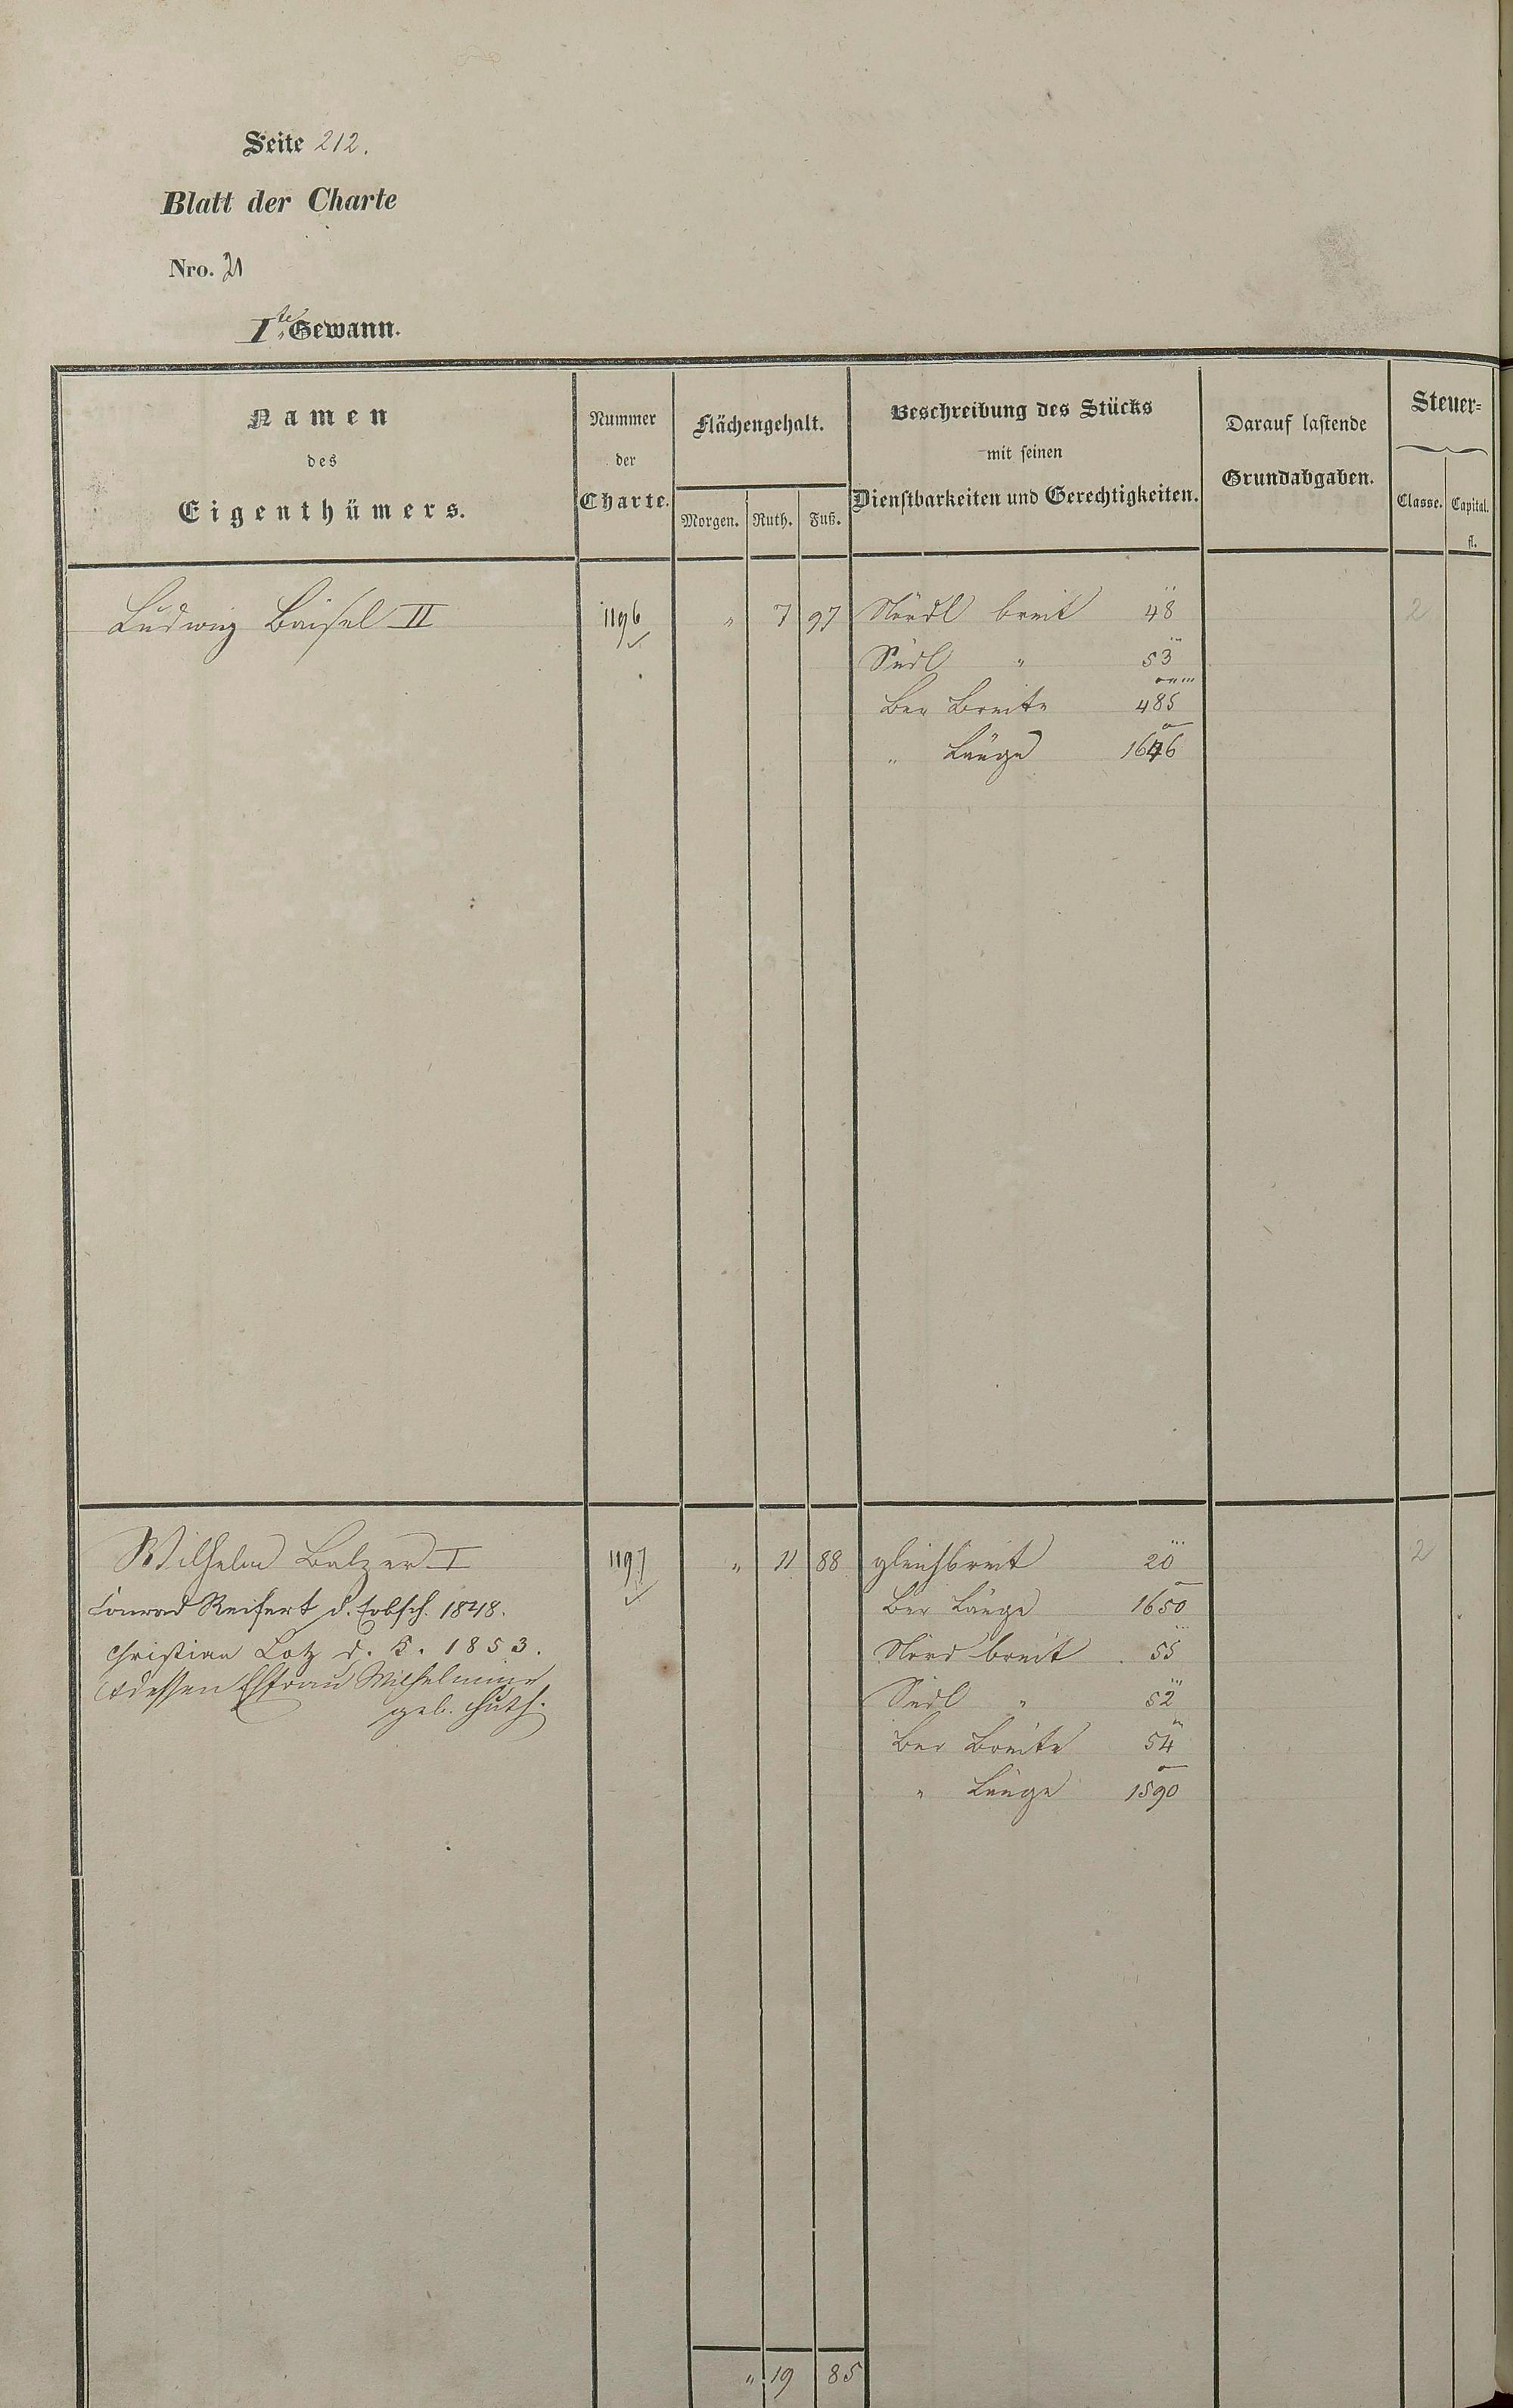 Seite 212.
Blatt der Charte
Nro. 21
Ite Gewann.
Namen
des
Eigenthümers.
Nummer
der
Charte.
Flächengehalt.
Morgen. Ruth. Fuß.
Beschreibung des Stücks
mit seinen
Dienstbarkeiten und Gerechtigkeiten.
Darauf lastende
Grundabgaben.
Steuer-
Classe. Capital.
fl.
Ludwig Beisel II 1196 " 7 97 Nördl breit 48 2
Südl " 53
Ber Breite 485
" Länge 1646
Wilhelm Balzer I 1197 " 11 88 gleichbreit 20 2
Conrad Reifert d. Erbsch. 1848. Ber Länge 1650
Christian Lotz d. K. 1853. Nörd breit 55
dessen Ehfrau Wilhelmine Südl " 52
geb. Huth.
Ber Breite 54
" Länge 1590
" 19 85